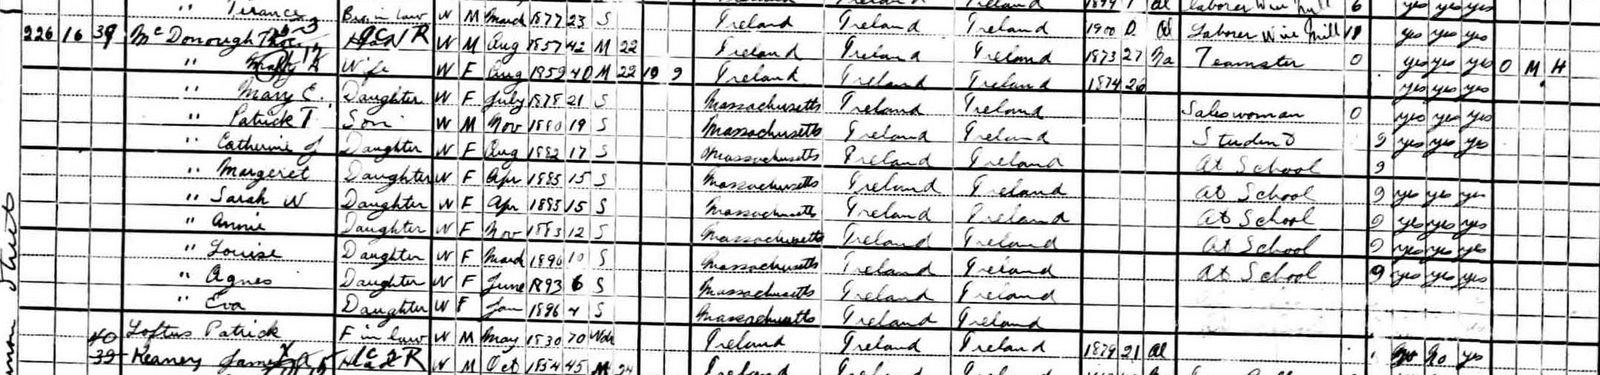 " Terance Bro in law W M March 1877 23 S Ireland Ireland 1899 1 Al laborer Wire Mill 6 yes yes yes
226 16 39 McDonough Thos Head W M Aug 1857 42 M 22 Ireland Ireland Ireland 1900 0 Al Laborer Wire Mill yes yes yes
" Mary Wife W F Aug 1859 40 M 22 10 9 Ireland Ireland Ireland 1873 27 Na Teamster 0 yes yes yes O M H
" Mary C. Daughter W F July 1878 21 S Massachusetts Ireland Ireland 1874 26 yes yes yes
" Patrick T Son W M Nov 1880 19 S Massachusetts Ireland Ireland Saleswoman 0 yes yes yes
" Catherine J Daughter W F Aug 1882 17 S Massachusetts Ireland Ireland Student 9 yes yes yes
" Margeret Daughter W F Apr 1885 15 S Massachusetts Ireland Ireland At School 9
" Sarah W Daughter W F Apr 1885 15 S Massachusetts Ireland Ireland at School 9 yes yes yes
" Annie Daughter W F Nov 1883 12 S Massachusetts Ireland Ireland at School 9 yes yes yes
" Louise Daughter W F March 1890 10 S Massachusetts Ireland Ireland at School 9 yes yes yes
" Agnes Daughter W F June 1893 6 S Massachusetts Ireland Ireland at School 9 yes yes yes
" Eva Daughter W F Jan 1896 4 S Massachusetts Ireland Ireland
40 Loftus Patrick F in law W M May 1830 70 Wd Ireland Ireland Ireland 1879 21 Al no yes
39 Keaney James Head W M Oct 1854 45 M 24 Ireland Ireland Ireland